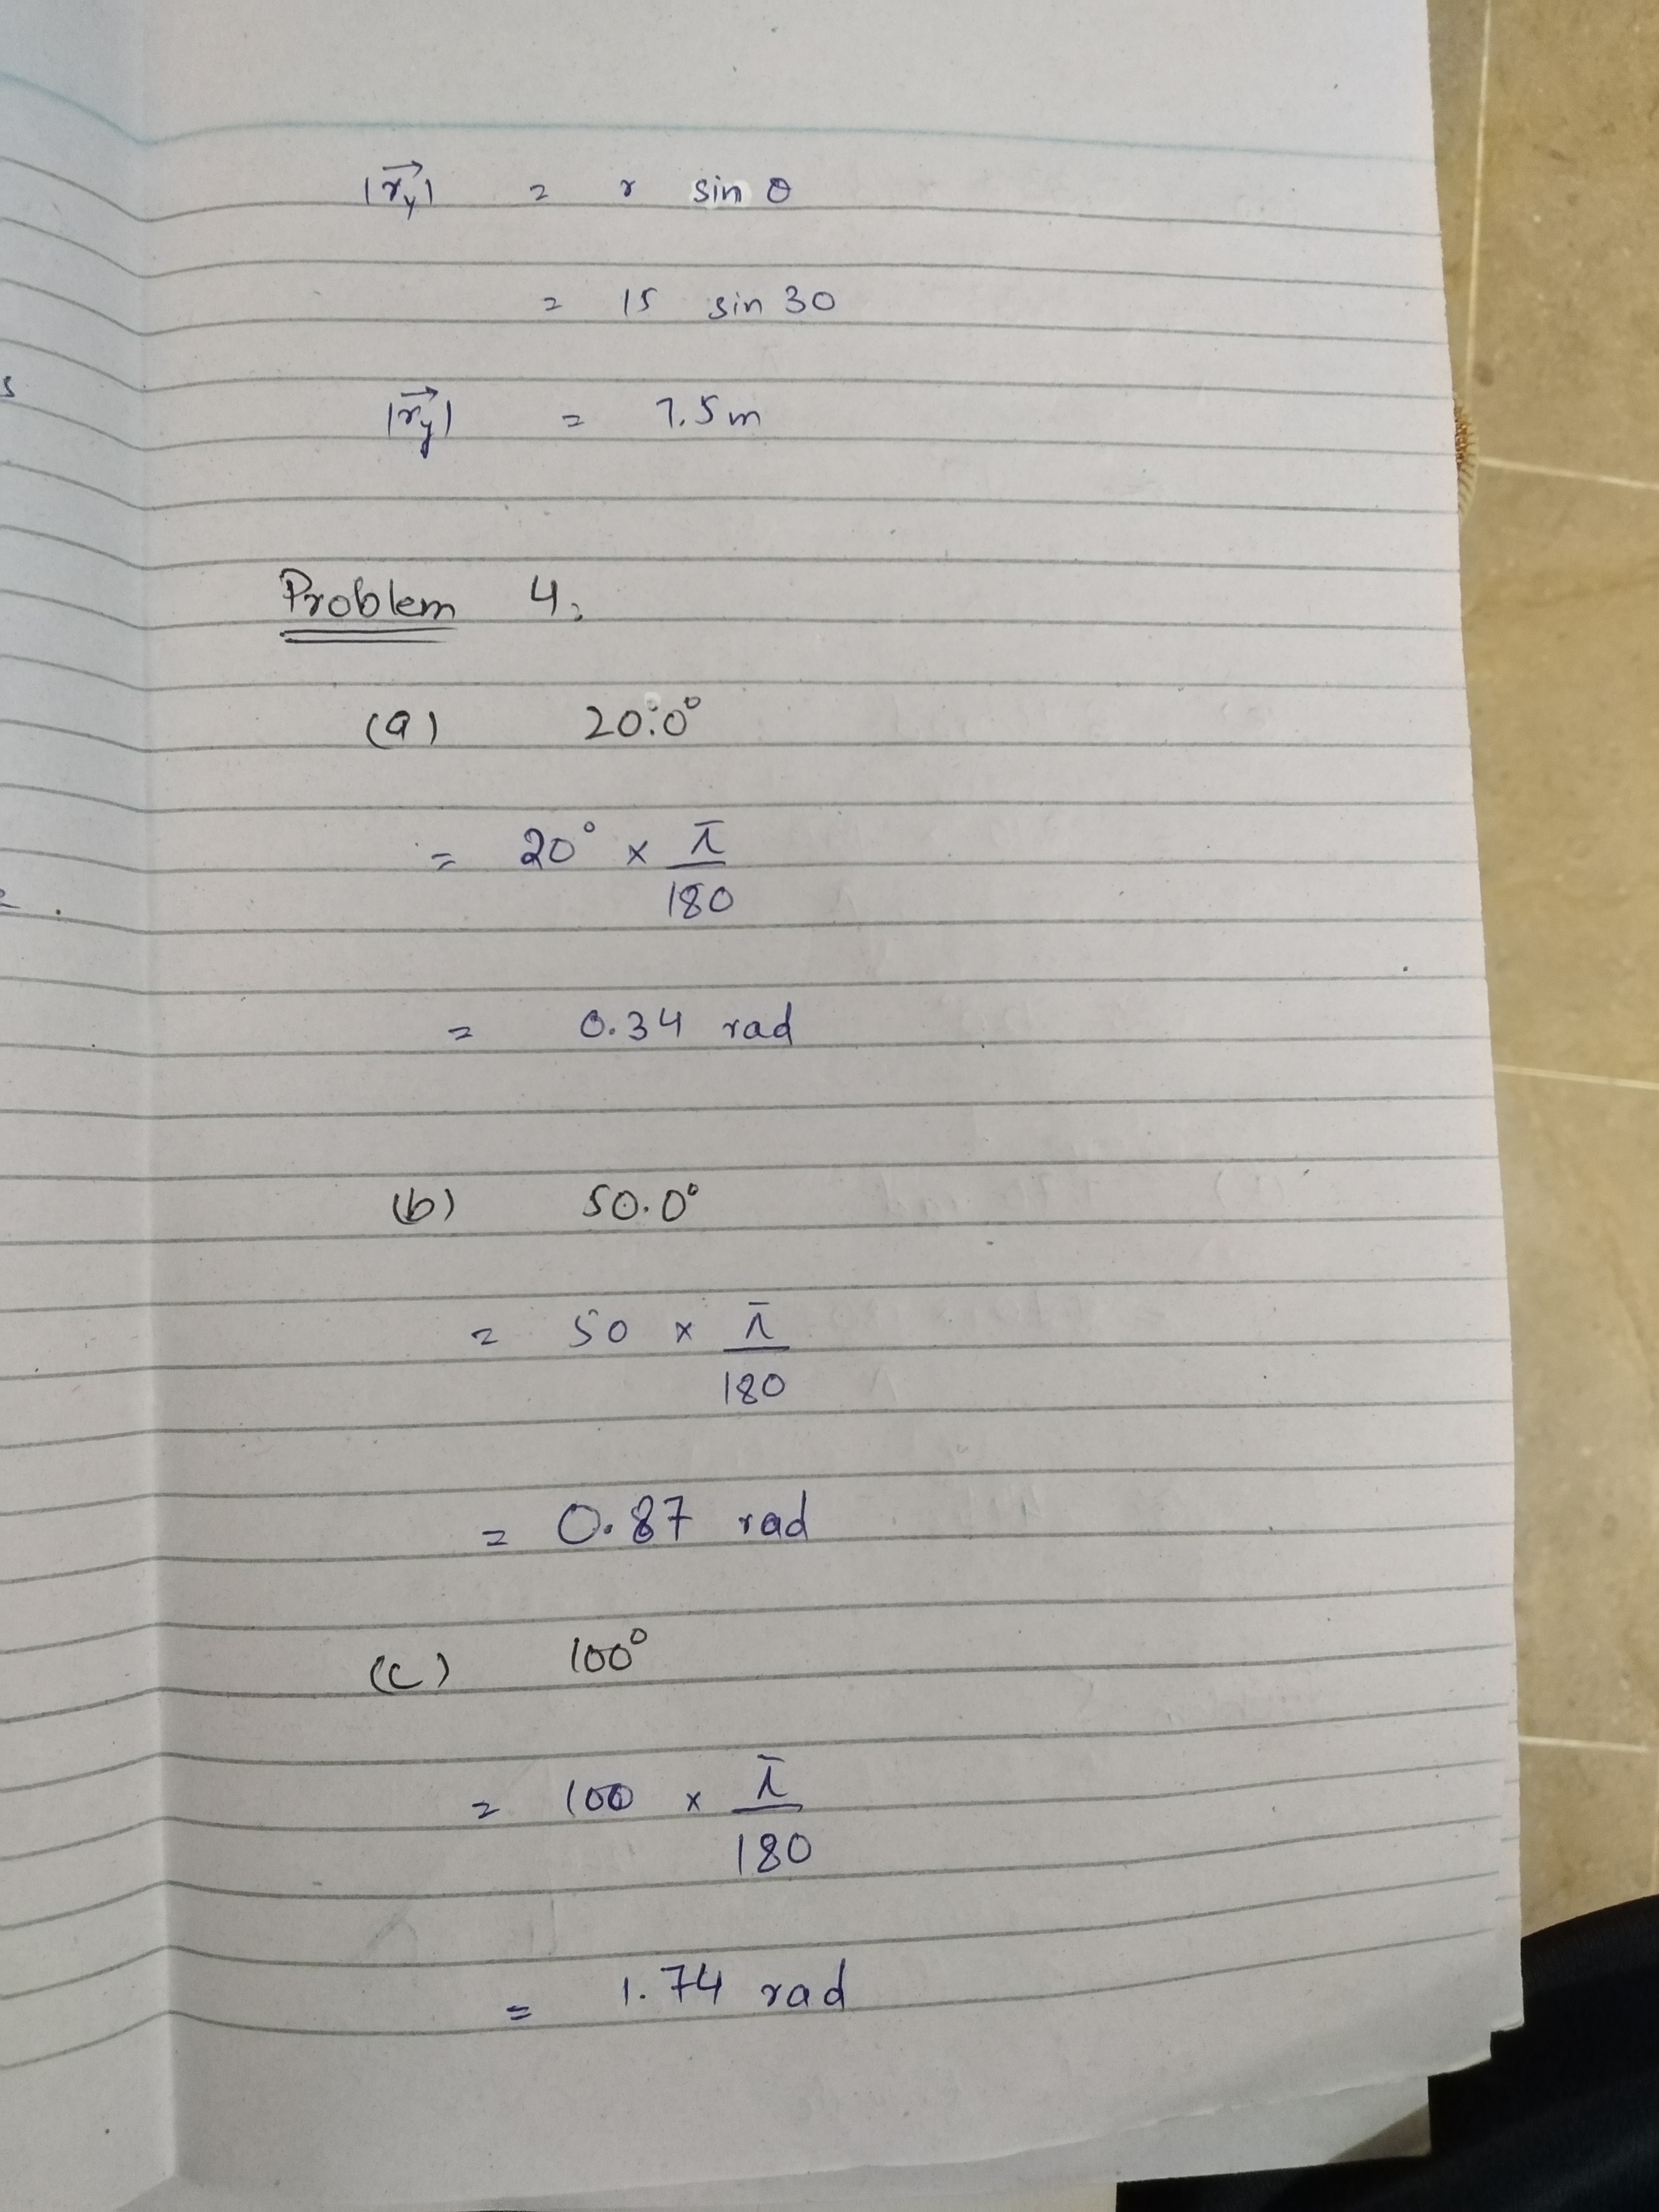 |r⃗y| = r sin θ
= 15 sin 30
|r⃗y| = 7.5 m
Problem 4:
(a) 20.0°
= 20° × π
180
= 0.34 rad
(b) 50.0°
= 50 × π
180
= 0.87 rad
(c) 100°
= 100 × π
180
= 1.74 rad